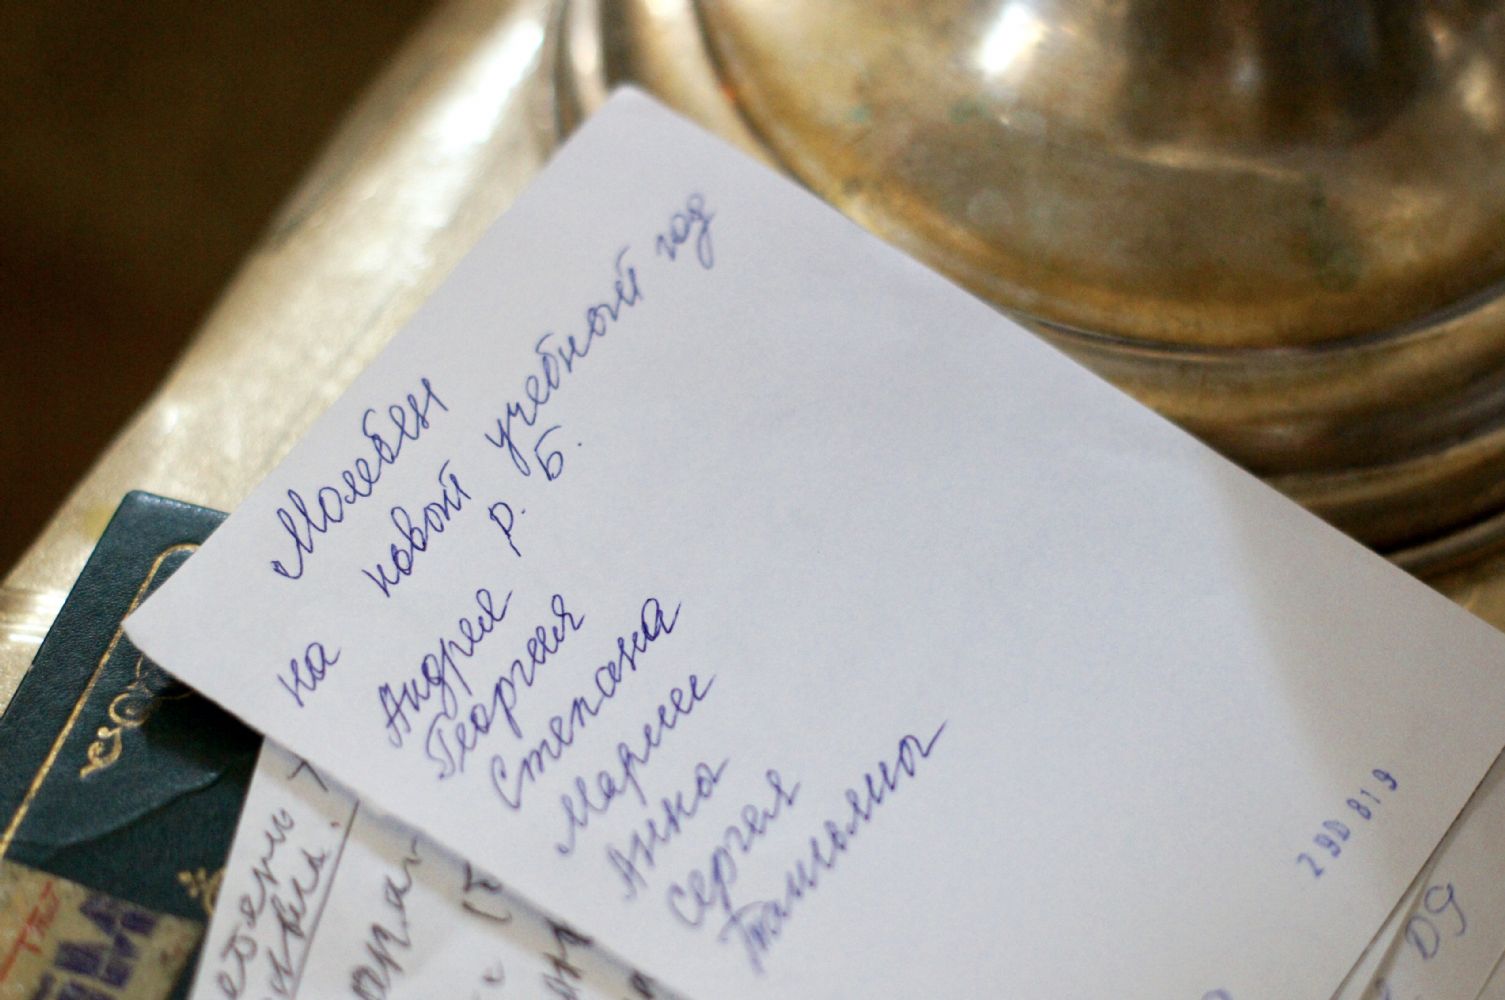 Молебен
на новой учебной год
р. Б.
Андрея
Георгия
Степана
Марии
Анна
Сергея
Татьяны
290819
09